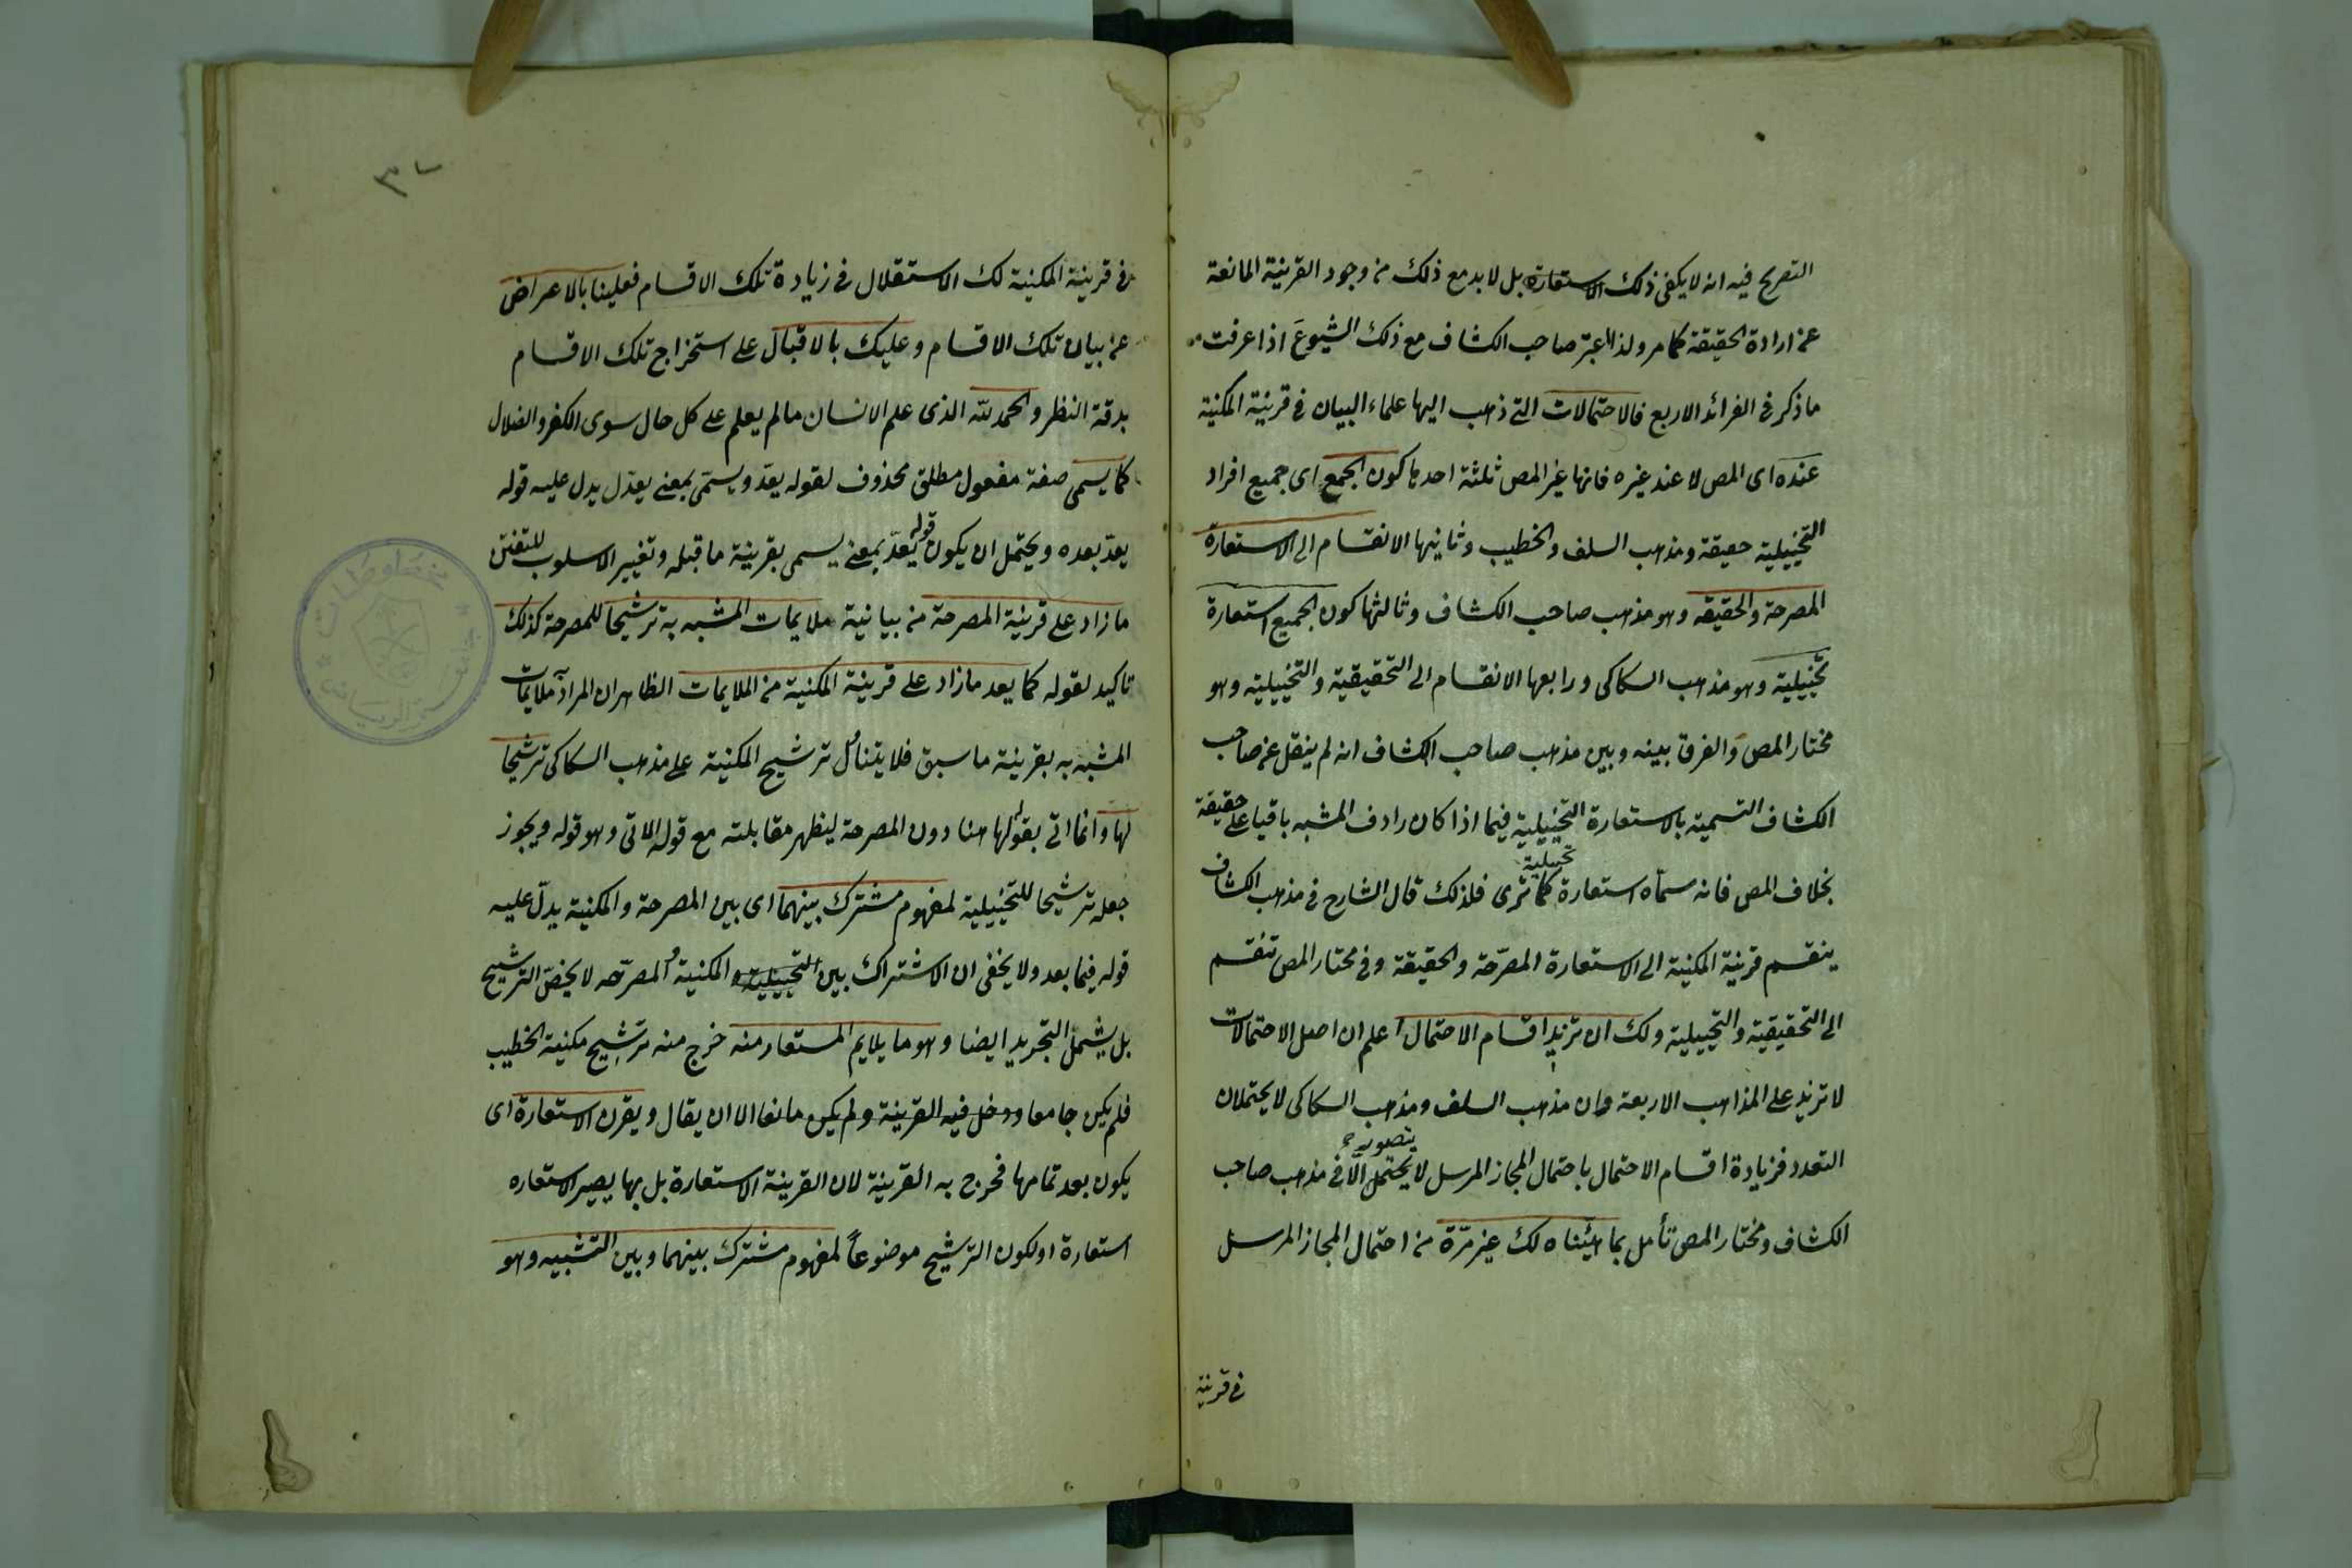 التصريح فيه انه لا يكفى ذلك الاستعارة بل لا بد مع ذلك من وجود القرينة المانعة
عن ارادة الحقيقة كما مر ولذا اعتبر صاحب الكشاف مع ذلك الشيوعَ اذا عرفت
ما ذكر فى الفرائد الاربع فالاحتمالات التى ذهب اليها علماء البيان فى قرينة المكنية
عنده اى المص لا عند غيره فانها غير المص ثلثة احديها كون الجمع اى جميع افراد
التخييلية حقيقة ومذهب السلف والخطيب وثانيها الانقسام الى الاستعارة
المصرحة والحقيقه وهو مذهب صاحب الكشاف وثالثها كون الجميع استعارة
تخييلية وهو مذهب السكاكى ورابعها الانقسام الى التحقيقية والتخييلية وهو
مختار المص والفرق بينه وبين مذهب صاحب الكشاف انه لم ينقل عن صاحب
الكشاف التسمية بالاستعارة التخييلية فيما اذا كان رادف المشبه باقيا على حقيقة
بخلاف المص فانه سمّاه استعارة تخييلية كما ترى فلذلك قال الشارح فى مذهب الكشاف
ينقسم قرينة المكنية الى الاستعارة المصرّحة والحقيقة وفى مختار المص تنقسم
الى التحقيقية والتخييلية ولك ان تزيد اقسام الاحتمال اعلم ان اصل الاحتمالات
لا تزيد على المذاهب الاربعة وان مذهب السلف ومذهب السكاكى لا يحتملان
التعدد فزيادة اقسام الاحتمال باحتمال المجاز المرسل لا يحتمل يتصور الّا فى مذهب صاحب
الكشاف ومختار المص تأمل بما هيّئناه لك غير مرّة من احتمال المجاز المرسل
فى قرينة
٣٧
فى قرينة المكنية لك الاستقلال فى زيادة تلك الاقسام فعلينا بالاعراض
عن بيان تلك الاقسام وعليك بالاقبال على استخراج تلك الاقسام
بدقة النظر والحمد لله الذى علم الانسان ما لم يعلم على كل حال سوى الكفر والضلال
كما يسمى صفة مفعول مطلق محذوف لقوله يعدّ ويسمّى بمعنى يعدّل يدل عليه قوله
يعدّ بعده ويحتمل ان يكون قوله يعدّ بمعنى يسمى بقرينة ما قبله وتغيير الاسلوب للتفنن
ما زاد على قرينة المصرحة من بيانية ملايمات المشبه به ترشيحا للمصرحة كذلك
تاكيد لقوله كما يعد ما زاد على قرينة المكنية من الملايمات الظاهر ان المراد ملايمات
المشبه به بقرينة ما سبق فلا يتناول ترشيح المكنية على مذهب السكاكى ترشيحا
لها وانما اتى بقوله لها هنا دون المصرحة ليظهر مقابلته مع قوله الاتى وهو قوله ويجوز
جعله ترشيحا للتخييلية لمفهوم مشترك بينهما اى بين المصرحة والمكنية يدلّ عليه
قوله فيما بعد ولا يخفى ان الاشتراك بين التخييلية و المكنية والمصرّحه لا يخصّ الترشيح
بل يشمل التجريد ايضا وهو ما يلايم المستعار منه خرج منه ترشيح مكنية الخطيب
فلم يكن جامعا ودخل فيه القرينة ولم يكن مانعا الا ان يقال ويقرن الاستعارة اى
يكون بعد تمامها فخرج به القرينة لان القرينة الاستعارة بل بها يصير الاستعاره
استعارة او لكون الترشيح موضوعاً لمفهوم مشترك بينهما وبين التشبيه وهو